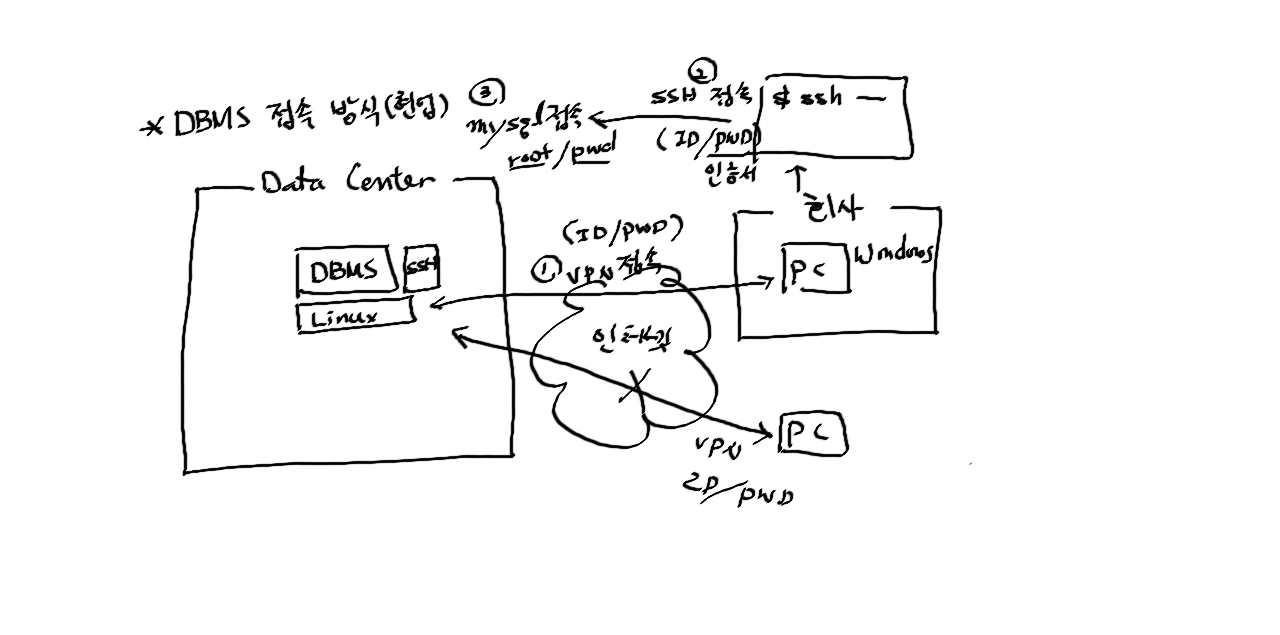 * DBMS 접속 방식(현업)
③
mysql접속
root/pwd
②
SSH 접속
(ID/PWD)
인증서
$ ssh —
Data Center
DBMS
SSH
Linux
(ID/PWD)
① VPN 접속
인터넷
회사
PC
Windows
PC
VPN
ID/PWD